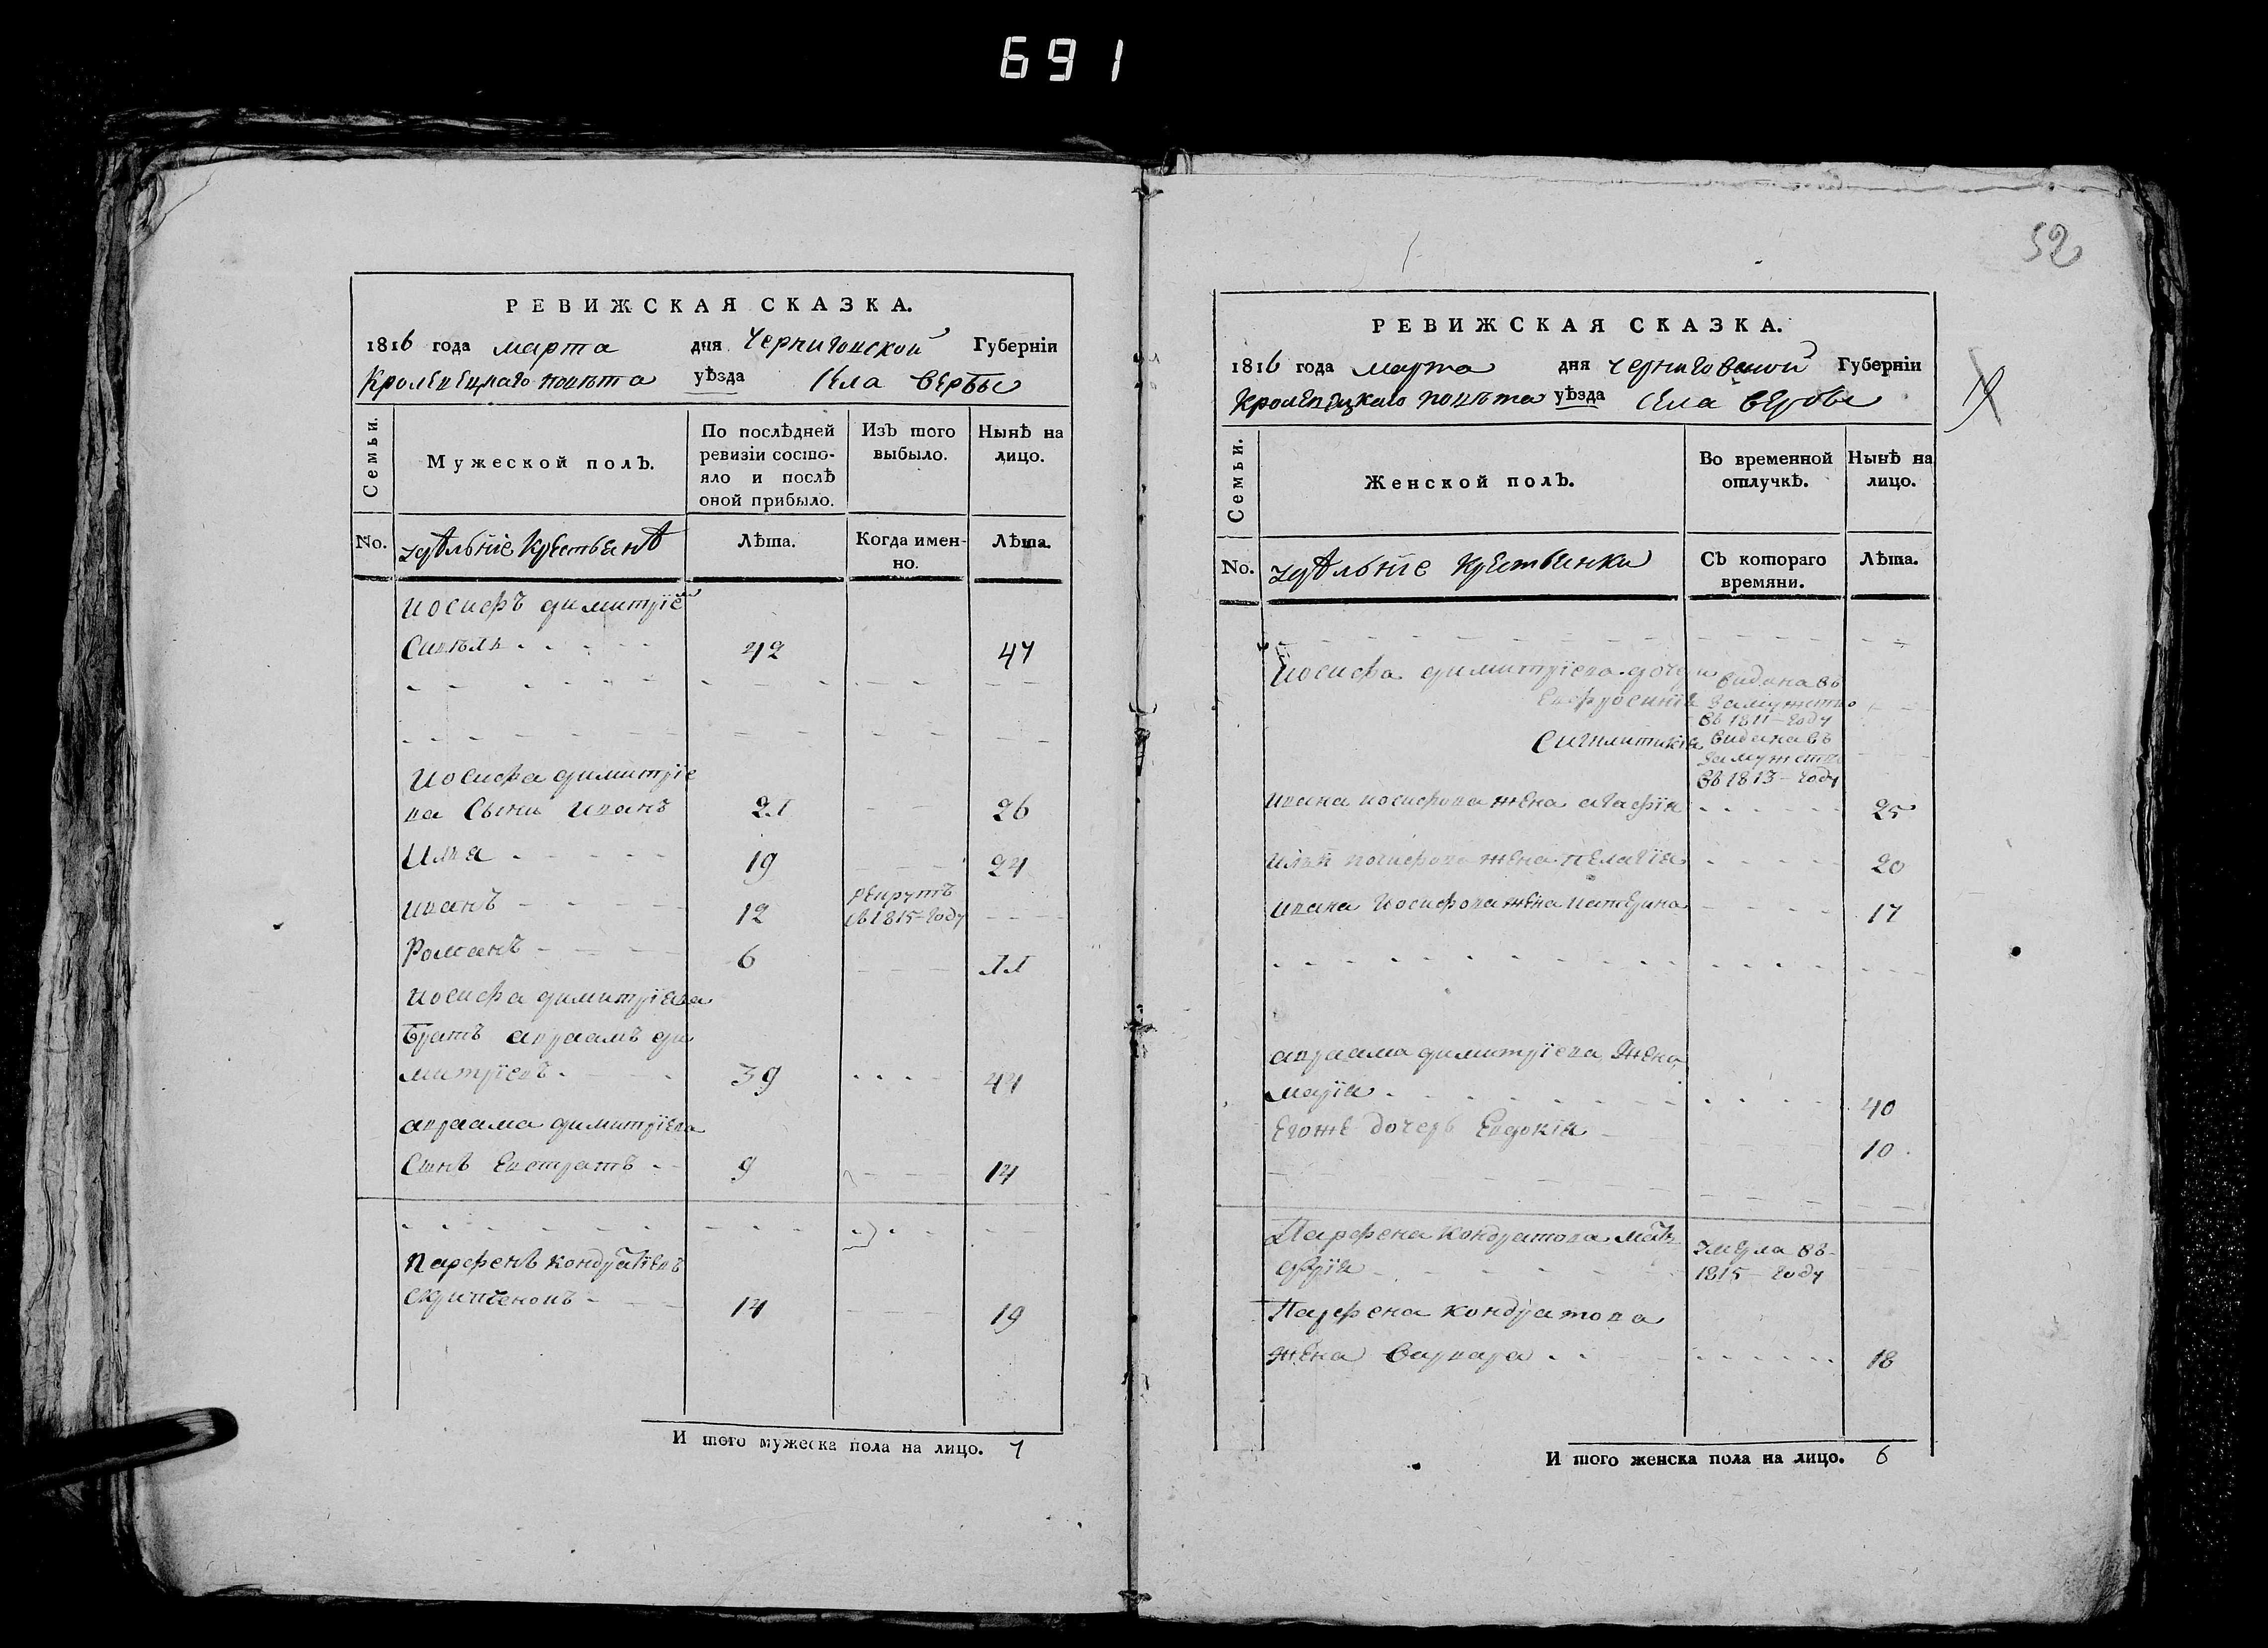 691
РЕВИЖСКАЯ СКАЗКА.
1816 года марта дня Черниговской Губерніи
Кролевецкаго повѣта уѣзда Села Вербы
Семьи.
Мужеской полъ.
По послѣдней ревизіи состояло и послѣ оной прибыло.
Изъ того выбыло.
Нынѣ на лицо.
No. удѣльніе Крестьянѣ
Лѣта.
Когда именно.
Лѣта.
Иосифъ димитріе
42 47
Иосифа димитріе
ва Сыни Иванъ 21 26
Илья 19 24
Иванъ 12 рекрутъ
въ 1815 году
Романъ 6 11
Иосифа димитріева
Братъ авраамъ ди
митріевъ 39 44
авраама димитріева
Синъ Евстратъ 9 14
Парфенъ кондратіевъ
14 19
И того мужеска пола на лицо. 7
52
РЕВИЖСКАЯ СКАЗКА.
1816 года марта дня Черниговской Губерніи
Кролевецкаго повѣта уѣзда Села Вербы
Семьи.
Женской полъ.
Во временной отлучкѣ.
Нынѣ на лицо.
No. удѣльніе Крестьянки
Съ котораго времяни.
Лѣта.
Иосифа димитріева дочери
Евфросинія видана въ
замужство
въ 1811 году
Сигклитикія видана въ
замужство
въ 1813 году
Ивана иосифова жена агафія 25
Ильи иосифова жена пелагія 20
Ивана Иосифова жена Катерина 17
авраама димитріева жена
марія 40
Егоже дочерь Евдокія 10
Парфена Кондратова мать
умерла въ
1815 году
Парфена Кондратова
жена Варвара 18
И того женска пола на лицо. 6